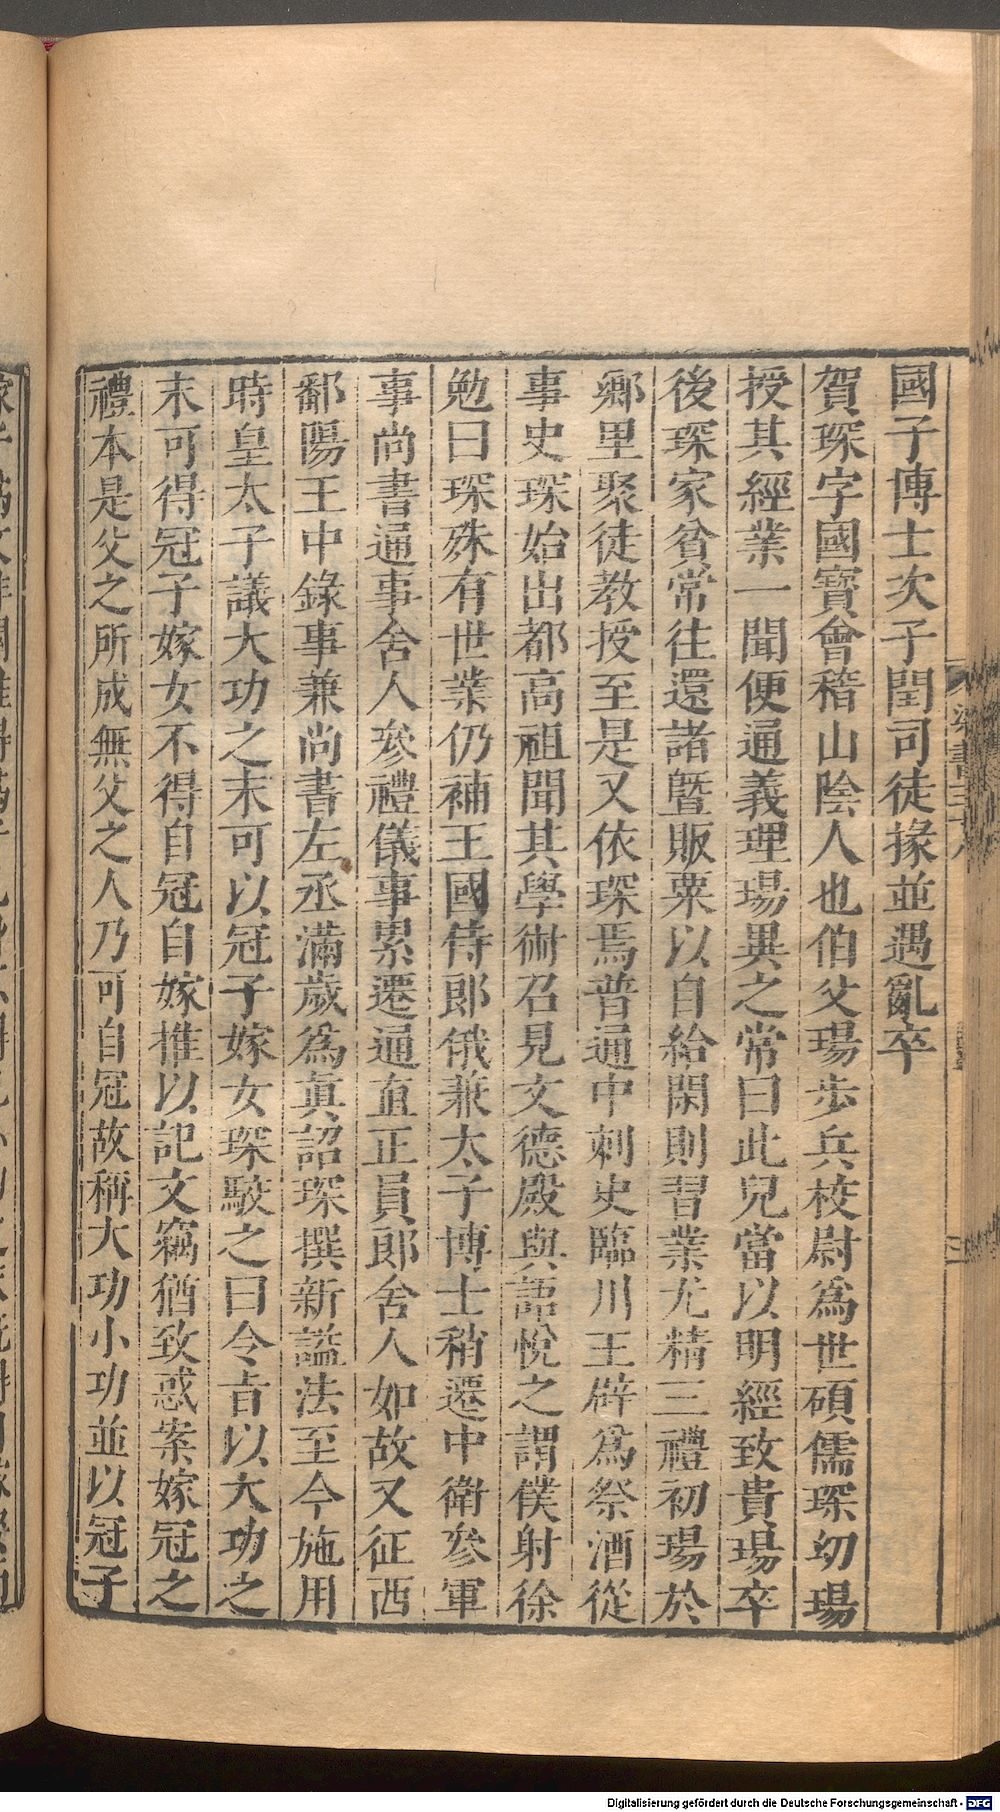 國子博士次子閏司徒掾並遇亂卒
賀琛字國寶會稽山陰人也伯父瑒步兵校尉爲世碩儒琛幼瑒
授其經業一聞便通義理瑒異之常曰此兒當以明經致貴瑒卒
後琛家貧常往還諸暨販粟以自給閑則習業尤精三禮初瑒於
鄉里聚徒教授至是又依琛焉普通中刺史臨川王辟爲祭酒從
事史琛始出都高祖聞其學術召見文德殿與語悅之謂僕射徐
勉曰琛殊有世業仍補王國侍郎俄兼太子博士稍遷中衛參軍
事尚書通事舍人參禮儀事累遷通直正員郎舍人如故又征西
鄱陽王中錄事兼尚書左丞滿歲爲真詔琛撰新謚法至今施用
時皇太子議大功之末可以冠子嫁女琛駮之曰令旨以大功之
末可得冠子嫁女不得自冠自嫁推以記文竊猶致惑案嫁冠之
禮本是父之所成無父之人乃可自冠故稱大功小功並以冠子
梁書三十八
三
Digitalisierung gefördert durch die Deutsche Forschungsgemeinschaft - DFG